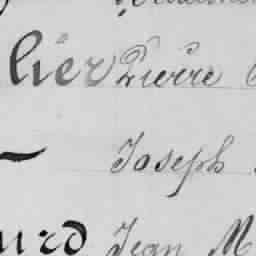 lier Pierre
— Joseph
urd Jean M